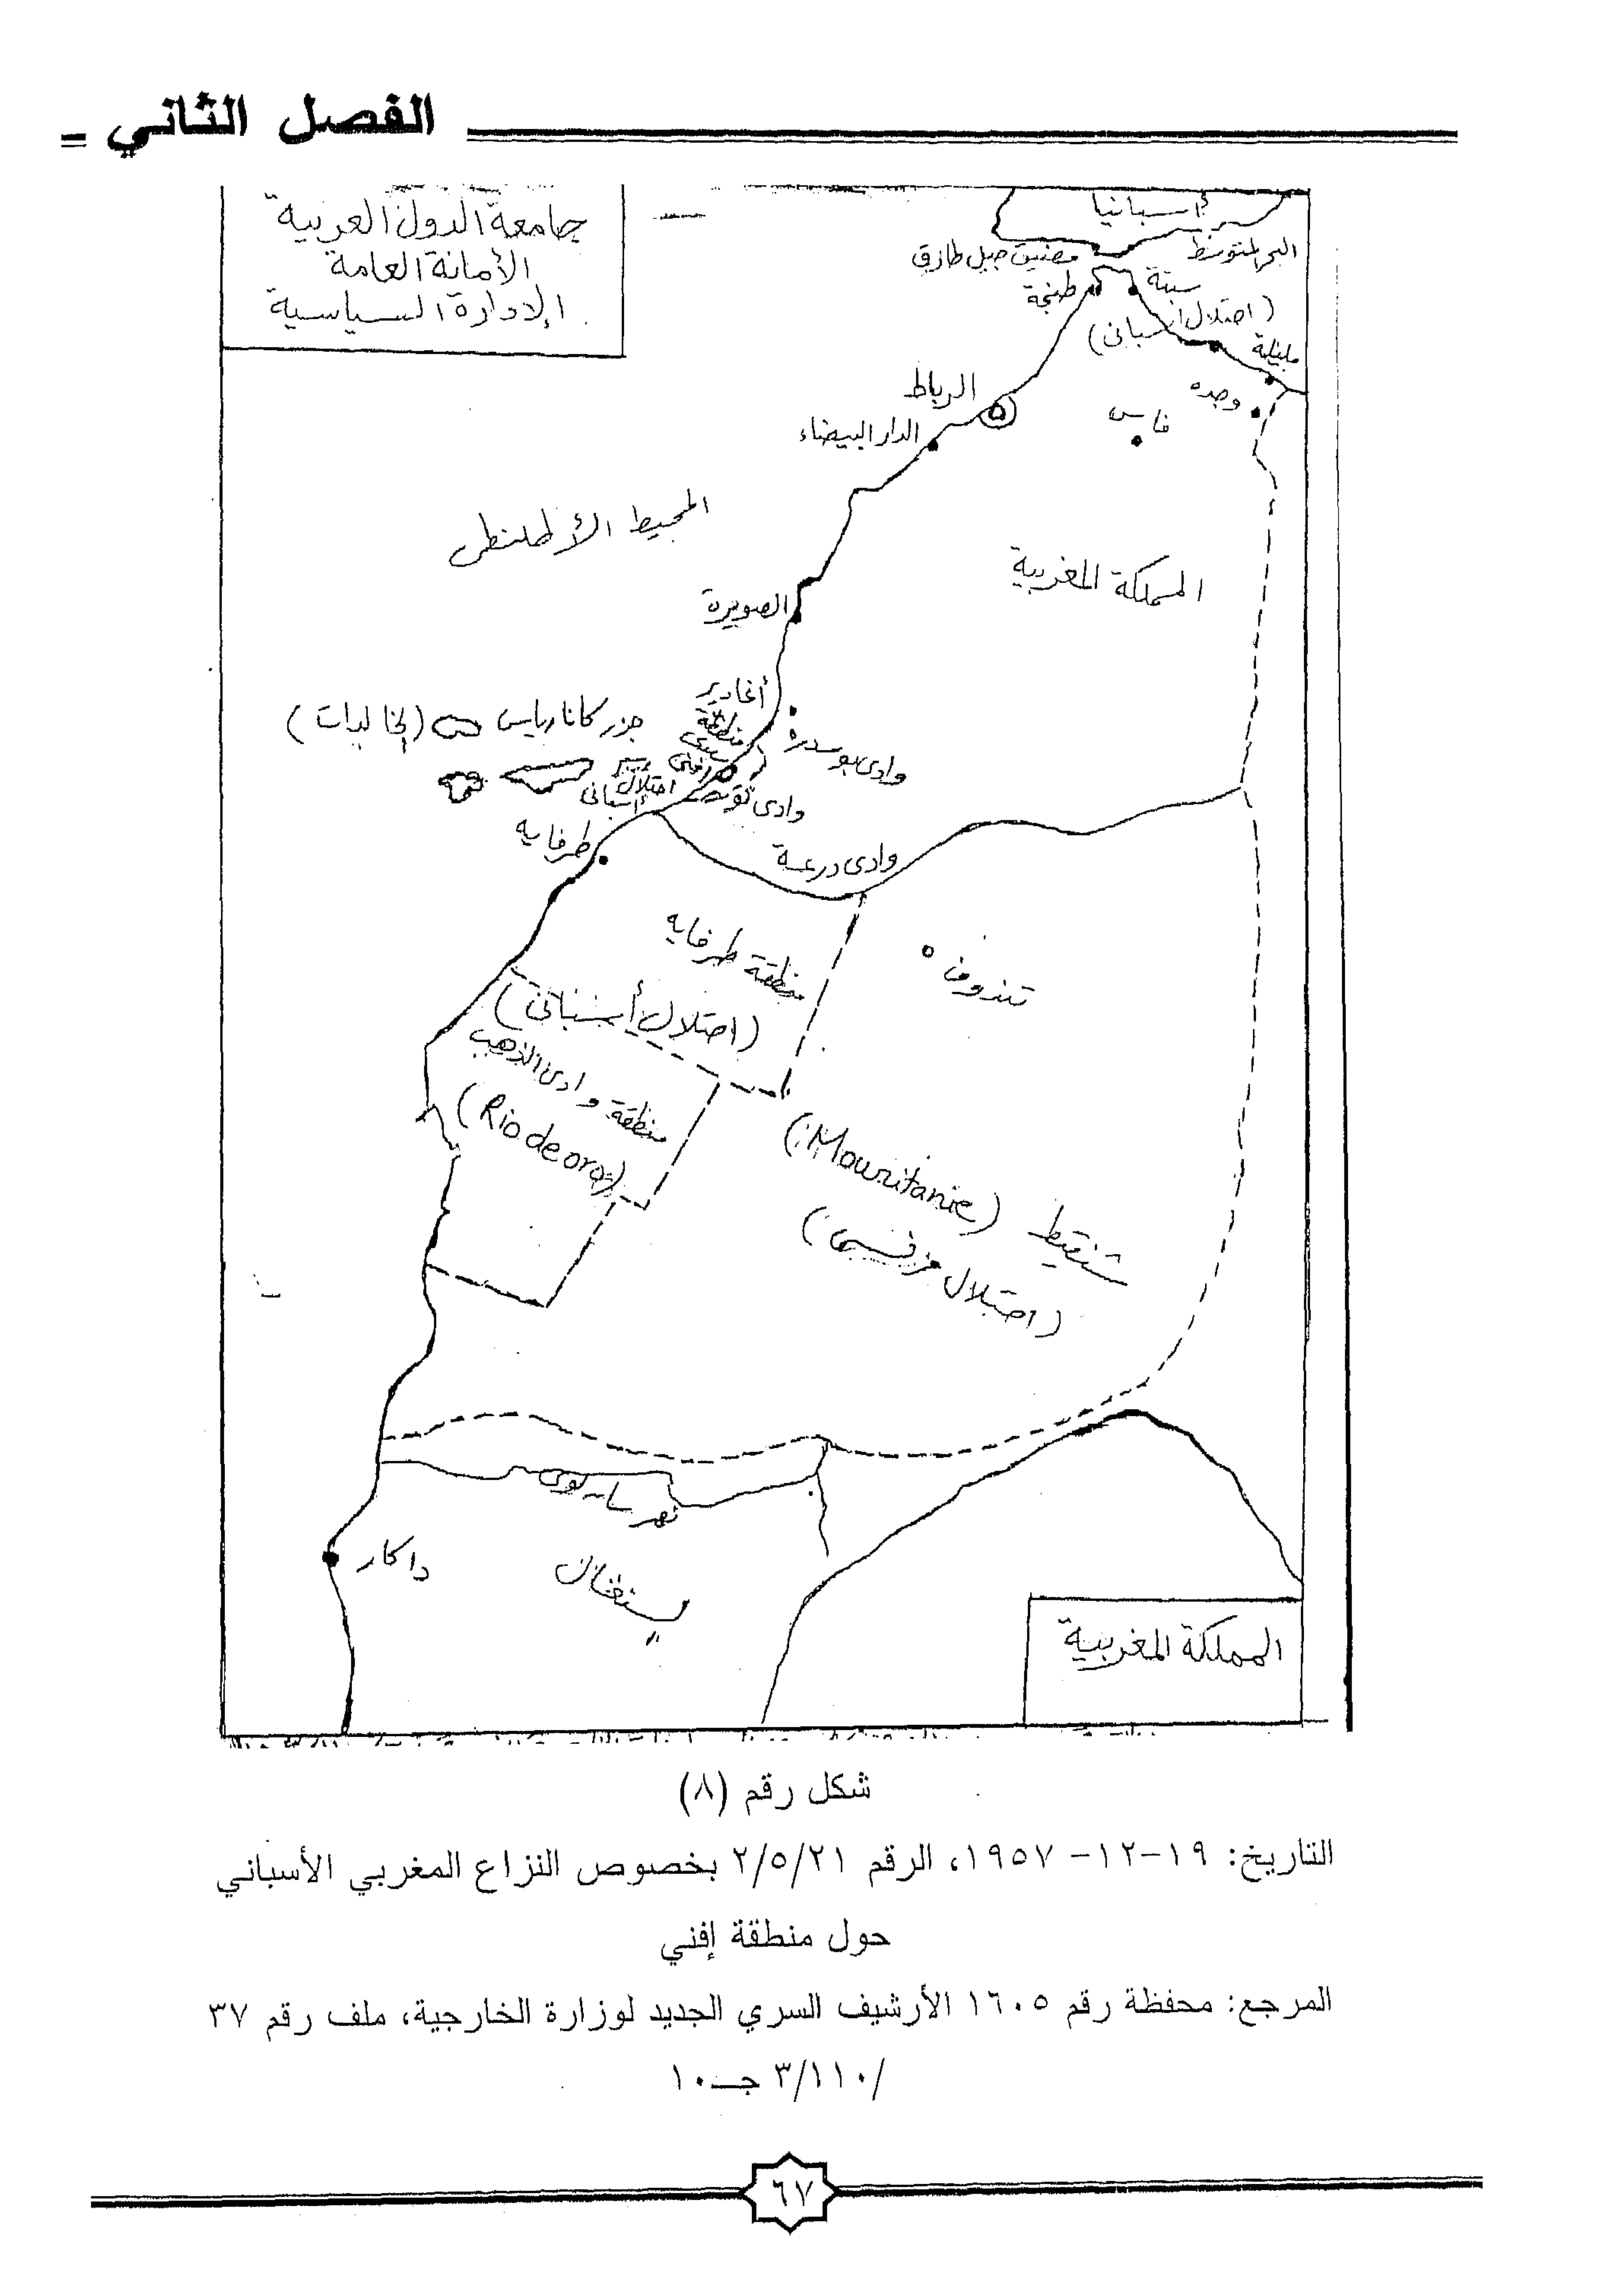 الفصل الثاني =
جامعة الدول العربية
الأمانة العامة
الإدارة السياسية
أسبانيا
البحر المتوسط
مضيق جبل طارق
سبتة
طنجة
(احتلال أسبانى)
مليلة
وجده
الرباط
فاس
الدار البيضاء
المحيط الأطلنطى
المملكة المغربية
الصويرة
أغادير
جزر كانارياس (الخالدات)
منطقة
سيدى
افنى
احتلال
أسبانى
وادى بوسدرة
وادى
طرفايه
وادى درعة
منطقة طرفايه
(احتلال أسبانى)
تندوف
منطقة وادى الذهب
(Rio de oro)
شنقيط (Mouritanie)
(احتلال فرنسى)
نهر سان لوى
داكار
المملكة المغربية
شكل رقم (٨)
التاريخ: ١٩-١٢- ١٩٥٧، الرقم ٢/٥/٢١ بخصوص النزاع المغربي الأسباني
حول منطقة إفني
المرجع: محفظة رقم ١٦٠٥ الأرشيف السري الجديد لوزارة الخارجية، ملف رقم ٣٧
/٣/١١٠ جـ١٠
٦٧